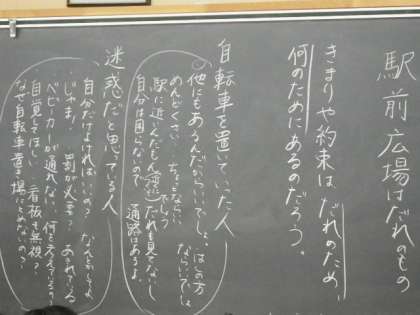 駅前広場はだれのもの
きまりや約束は、だれのため、
何のためにあるのだろう。
自転車を置いていた人
他にもあるんだからいいでしょ、
めんどくさい ちょっとならいいでしょ
駅に近いんだもん だれも見てないし
自分は困らないので 通路はあるよ
迷惑だと思ってる人
自分だけよければいいの？ なんとかしてよ
じゃま。 罰が必要？ あきれている
ベビーカーが通れない 何を考えているの
自覚してほしい 看板も無視？
なぜ自転車置き場にとめないの？